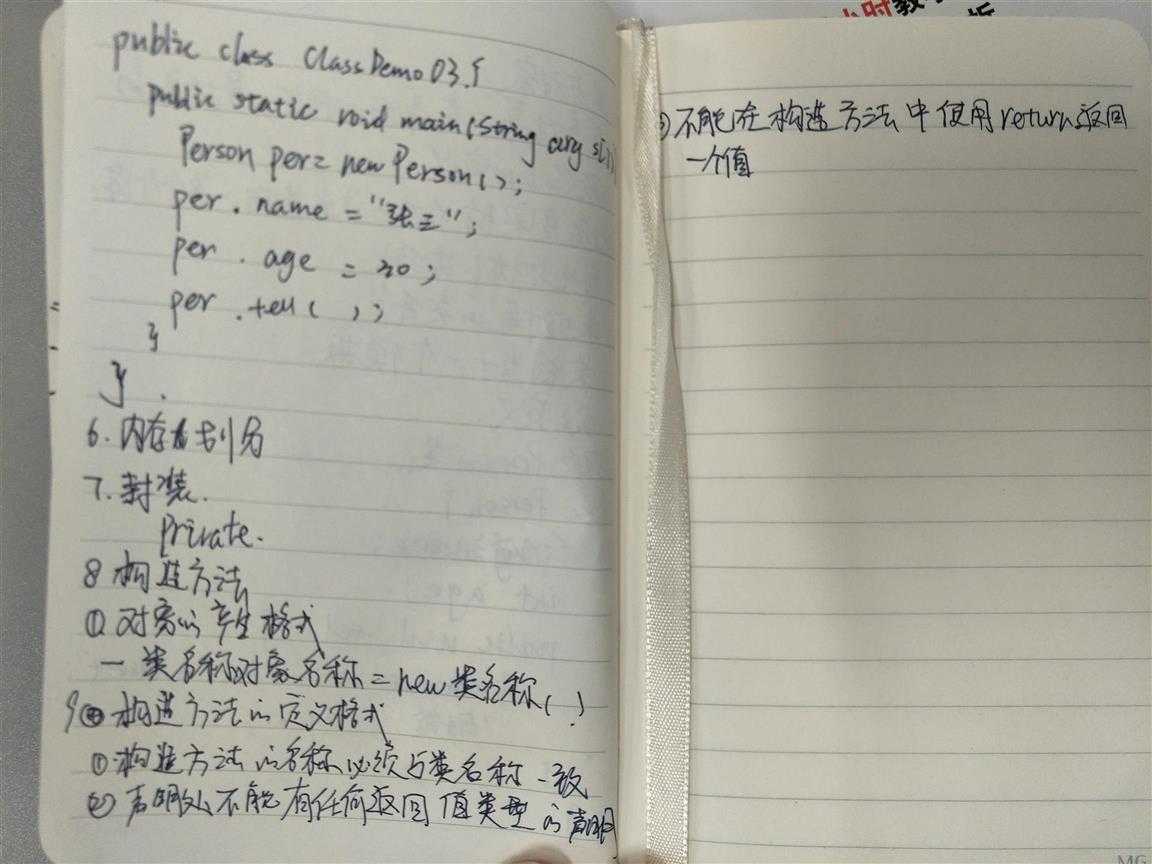 public class ClassDemo03{
public static void main(String args[])
Person per= new Person();
per.name="张三";
per.age=30;
per.tell();
}
}.
6.内存划分
7.封装.
private.
8 构造方法
①对象的产生格式
一类名称对象名称=new类名称()
9 构造方法的定义格式
①构造方法的名称必须与类名称一致
②声明处不能有任何返回值类型的声明
③不能在构造方法中使用return返回
一个值
小时教
析
MG